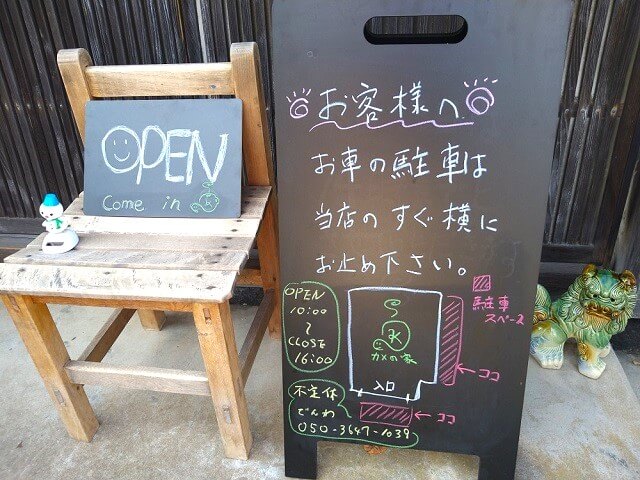 OPEN
Come in
お客様へ
お車の駐車は
当店のすぐ横に
お止め下さい。
OPEN
10:00
〜
CLOSE
16:00
カメの家
入口
駐車
スペース
←ココ
←ココ
不定休
でんわ
050-3647-1039